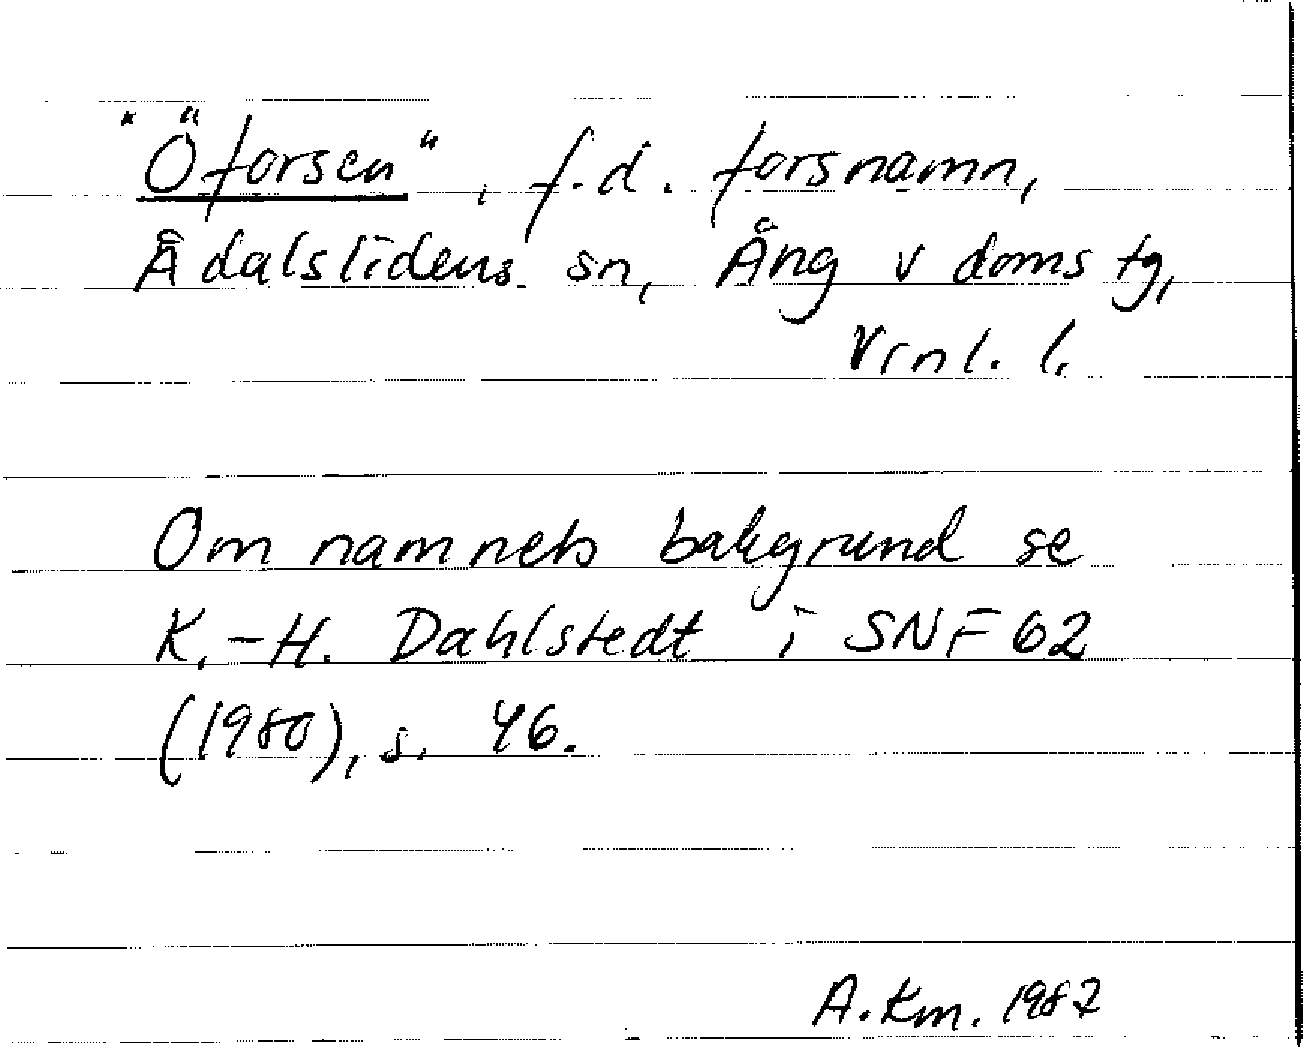 "Öforsen", f.d. forsnamn,
Ådalslidens sn, Ång v doms tg,
Vrnl. l.
Om namnets bakgrund se
K.-H. Dahlstedt i SNF 62
(1980), s. 46.
A. Km. 1987